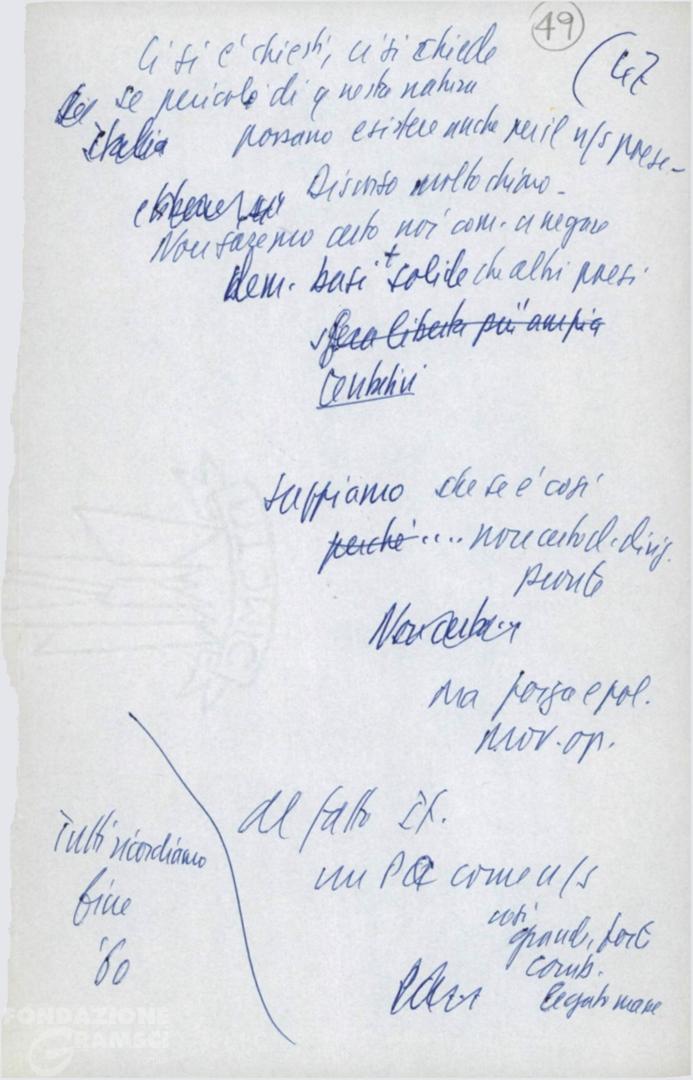 49
(47
Ci si è chiesti, ci si chiede
se pericolo di questa natura
Italia possano esistere anche per il n/s paese -
Discorso molto chiaro -
Non saremo certo noi com. a negare
dem. basi + solide che altri paesi
sfera libertà più ampia
sappiamo che se è così
perché .... non certo d. dirig.
Non certo
ma forza e pol.
mov. op.
al fatto
un PC come n/s
così
grande, forte
comb.
legato masse
Tutti ricordiamo
fine
'60
FONDAZIONE
GRAMSCI